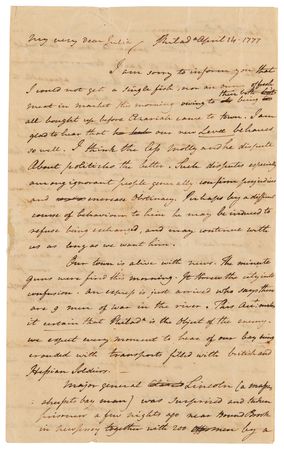 My very dear Julia Philad.ᵃ April 14. 1777
I am sorry to inform you that
I could not get a single fish, nor an
of fresh
meat in market this morning owing to
their both
being
all bought up before Azariah came to town. I am
glad to hear that our new Lewd behaves
so well. I think the less Molly and he dispute
About politicks the better. Such disputes especially
among ignorant people generally confirm prejudices
and increase Obstinacy. Perhaps by a different
course of behaviour to him he may be induced to
refuse being exchanged, and may continue with
us as long as we want him.
Our town is alive with news. The minute
guns were fired this morning. It threw the city into
confusion. An express is just arrived who says there
are 9 men of war in the river. This Air makes
it certain that Philadᵃ is the Object of the enemy.
we expect every moment to hear of our bay being
crouded with transports filled with british and
Hessian Soldiers.
Major general Lincoln (a mass-
achusets bay man) was Surprised and taken
prisoner a few nights ago near Bound Brook
in new jersey together with 200 men by a